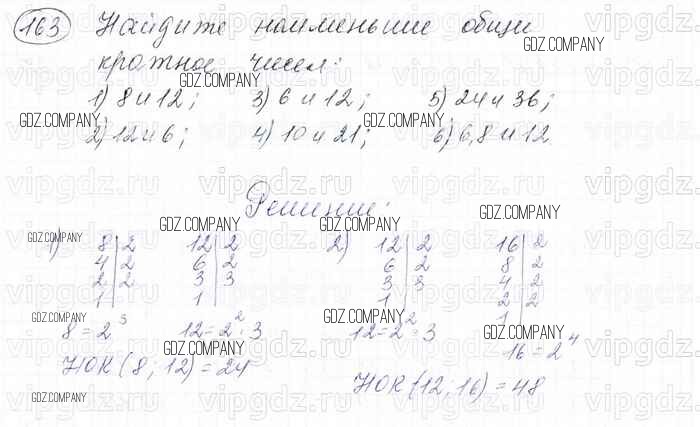 163 Найдите наименьшие общи
кратное чисел:
1) 8 и 12; 3) 6 и 12; 5) 24 и 36;
2) 12 и 6; 4) 10 и 21; 6) 6,8 и 12
Решение:
1) 8|2 12|2 2) 12|2 16|2
4|2 6|2 6|2 8|2
2|2 3|3 3|3 4|2
1 1 1 2|2
1
8 = 2³ 12 = 2² · 3 12 = 2² · 3
16 = 2⁴
НОК (8; 12) = 24
НОК (12, 16) = 48
GDZ.COMPANY
vipgdz.ru